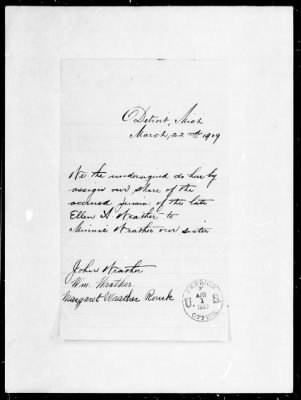 Detroit, Mich
March, 22nd 1909
We the undersigned do hereby
assign our share of the
accrued pension of the late
Ellen A Wrather to
Minnie Wrather our sister
John Wrather
Wm. Wrather.
Margaret Wrather Rourk
PENSION
APR
1
U. S.
OFFICE